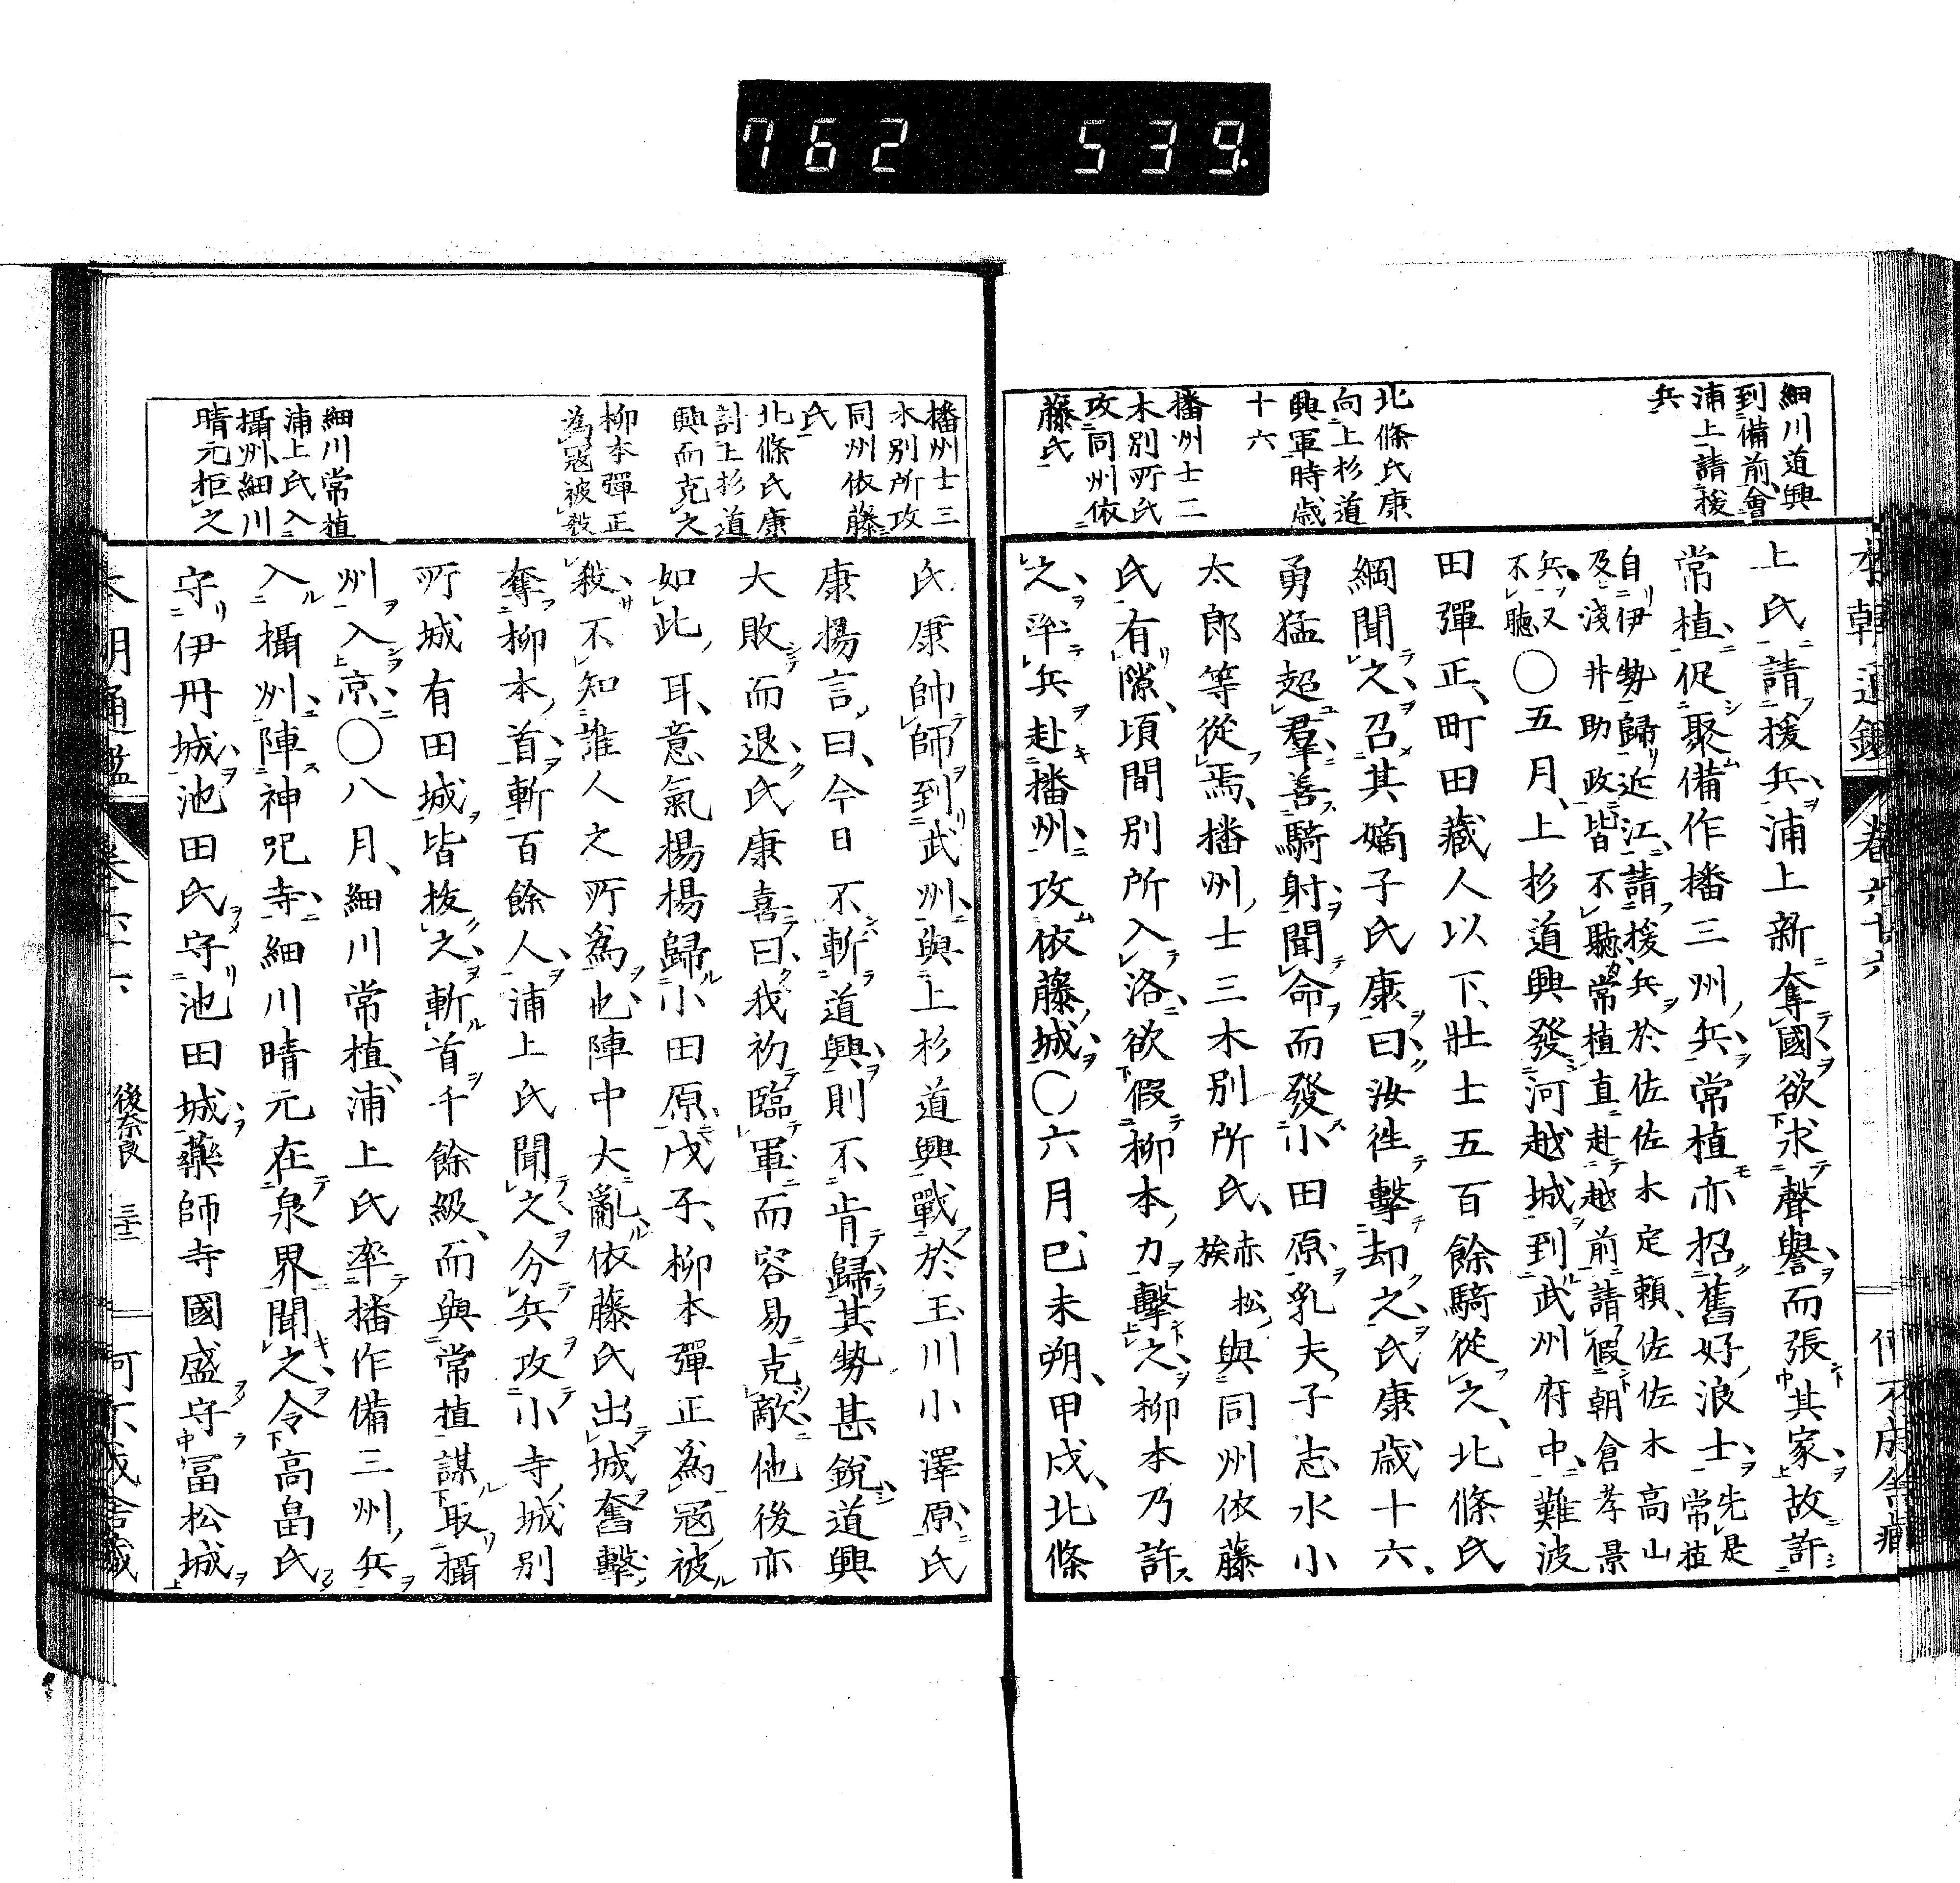 762 539.
細川道興
到備前會
浦上請援
兵
北條氏康
向上杉道
興軍時歳
十六
播州士二
木別所氏
攻同州依
藤氏
上氏請援兵浦上新奪國欲求聲譽而張其家故許
常植促聚備作播三州兵常植亦招舊好浪士先是常植
自伊勢歸近江請援兵於佐佐木定頼佐佐木高山
及淺井助政皆不聽常植直赴越前請假朝倉孝景
兵又不聽〇五月上杉道興發河越城到武州府中難波
田彈正町田藏人以下壯士五百餘騎從之北條氏
綱聞之召其嫡子氏康曰汝徃擊却之氏康歳十六
勇猛超羣善騎射聞命而發小田原乳夫子志水小
太郎等從焉播州士三木別所氏赤松族與同州依藤
氏有隙頃間別所入洛欲假柳本力擊之柳本乃許
之率兵赴播州攻依藤城〇六月巳未朔甲戌北條
播州士三
木別所攻
同州依藤
氏
北條氏康
討上杉道
興而克之
柳本彈正
為寇被殺
細川常植
浦上氏入
攝州細川
晴元拒之
氏康帥師到武州與上杉道興戰於玉川小澤原氏
康揚言曰今日不斬道興則不肯歸其勢甚銳道興
大敗而退氏康喜曰我初臨軍而容易克敵他後亦
如此耳意氣揚揚歸小田原戊子柳本彈正為寇被
殺不知誰人之所為也陣中大亂依藤氏出城奮擊
奪柳本首斬百餘人浦上氏聞之分兵攻小寺城別
所城有田城皆拔之斬首千餘級而與常植謀取攝
州入京〇八月細川常植浦上氏率播作備三州兵
入攝州陣神呪寺細川晴元在泉界聞之令高畠氏
守伊丹城池田氏守池田城藥師寺國盛守冨松城
後奈良 三十二